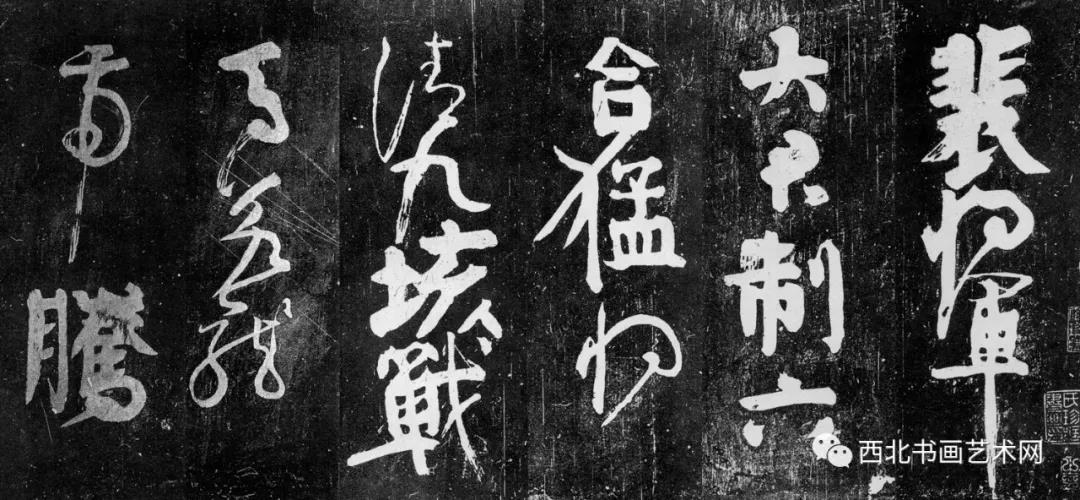 裴將軍
大君制六
合猛將
清九垓戰
馬若龍
虎騰
西北书画艺术网